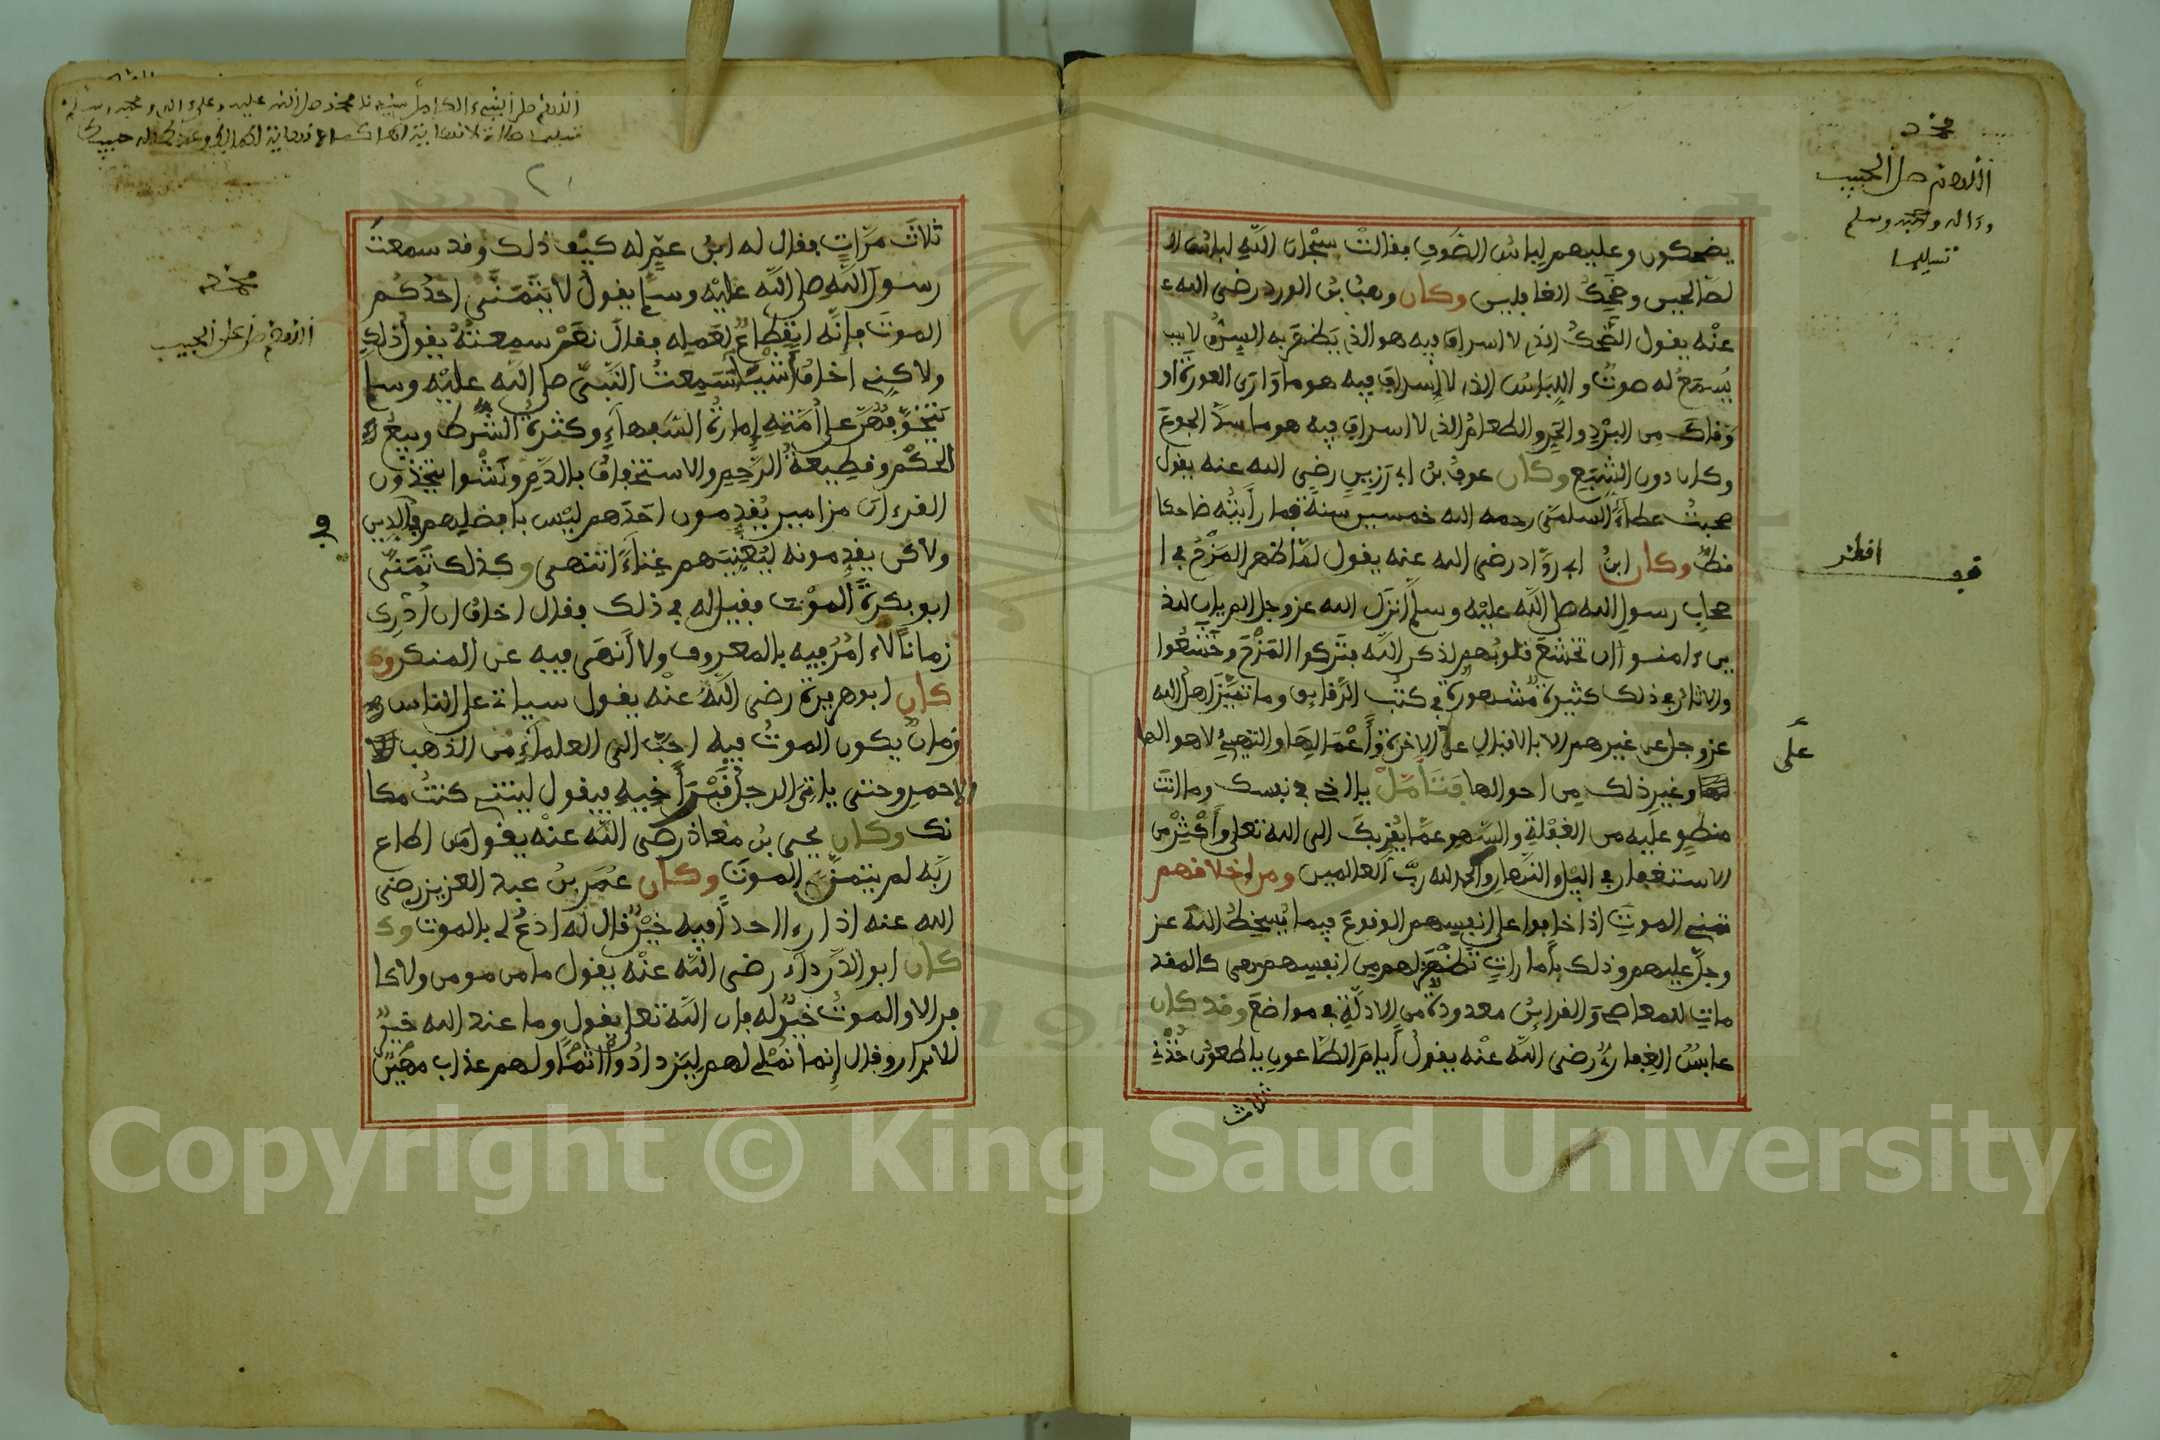 محمد
اللهم صل الحبيب
وءاله وصحبه وسلم
تسليما
يضحكون وعليهم لباس الصوف فقالت سبحان الله لباس الا
لصالحين وضحك الغافلين وكان وهب بن الورد رضي الله ع
عنه يقول الضحك الذي لا اسراف فيه هو الذي يظهر به السن ولا
يسمع له صوت واللباس الذي لا اسراف فيه هو ما وارى العورة او
وقاك من البرد والحر والطعام الذي لا اسراف فيه هو ما سد الجوع
وكان دون الشبع وكان عوف بن ابي رزين رضي الله عنه يقول
صحبت عطاء السلمي رحمه الله خمسين سنة فما رأيته ضاحكا
قط وكان ابن ابي رواد رضي الله عنه يقول لما ظهر المزح في ا
صحاب رسول الله صلى الله عليه وسلم أنزل الله عز وجل الم يان للذ
ين ءامنوا ان تخشع قلوبهم لذكر الله فتركوا المزح وخشعوا
والاثار في ذلك كثيرة مشهورة في كتب الرقايق وما تميز اهل الله
عز وجل عن غيرهم الا بالاقبال على الاخرة وأعمالها والتهيئ لاهوالها
وغير ذلك من احوالها فتأمل يا اخي في نفسك وما انت
منطو عليه من الغفلة والسهو عما يقربك الى الله تعلى وأكثر من
الاستغفار في اليل والنهار والحمد لله رب العالمين ومن اخلاقهم
تمني الموت اذا خافوا على انفسهم الوقوع فيما يسخط الله عز
وجل عليهم وذلك بأمارات تظهر لهم من انفسهم هي كالمقد
مات للمعاصي والقرائن معدودة من الادلة في مواضع وقد كان
عابس الغفاري رضي الله عنه يقول أيام الطاعون يا طاعون خذني
ثلاث
افطر
قف
على
اللهم صل
محمد
اللهم صل على الحبيب
ثلاث مرات فقال له ابن عم له كيف ذلك وقد سمعت
رسول الله صلى الله عليه وسلم يقول لا يتمنى احدكم
الموت فإنه انقطاع لعمله فقال نعم سمعته يقول ذلك
ولاكني اخاف أشيا سمعت النبي صلى الله عليه وسلم
يتخوفهن على أمته إمارة السفهاء وكثرة الشرط وبيع
الحكم وقطيعة الرحم والاستخفاف بالدم ونشوا يتخذون
القرءان مزامير يقدمون احدهم ليس بافضلهم في الدين
ولاكن يقدمونه ليغنيهم غناء انتهى وكذلك تمنى
ابو بكرة الموت فقيل له في ذلك فقال اخاف ان ادرك
زمانا لا ءامر فيه بالمعروف ولا أنهى فيه عن المنكر وك
كان ابو هريرة رضي الله عنه يقول سياتي على الناس
زمان يكون الموت فيه احب الى العلماء من الذهب
الاحمر وحتى ياتي الرجل قبر أخيه فيقول ليتني كنت مكا
نك وكان يحيى بن معاذ رضي الله عنه يقول من اطاع
ربه لم يتمن الموت وكان عمر بن عبد العزيز رضي
الله عنه اذا رءا احدا فيه خير قال له ادع لي بالموت وك
كان ابو الدرداء رضي الله عنه يقول ما من مومن ولا كا
فر الا والموت خير له فان الله تعلى يقول وما عند الله خير
للابرار وقال إنما نملي لهم ليزدادوا اثما ولهم عذاب مهين
Copyright © King Saud University